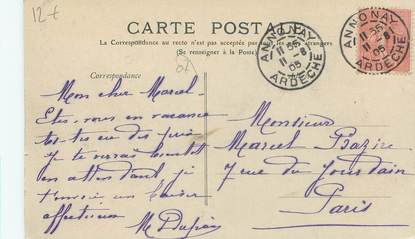 12 €
CARTE POSTALE
La Correspondance au recto n'est pas acceptée par
étrangers
(Se renseigner à la Poste)
87
ANNONAY
ARDÈCHE
11 -8
05
ANNONAY
ARDÈCHE
11 -8
05
Correspondance
Mon cher Marcel
Etes-vous en vacances
es-tu
Je te verrai bientôt
en attendant je
t'envoie un baiser
affectueux
M
Monsieur
Marcel Bazire
7 rue du Jourdain
Paris